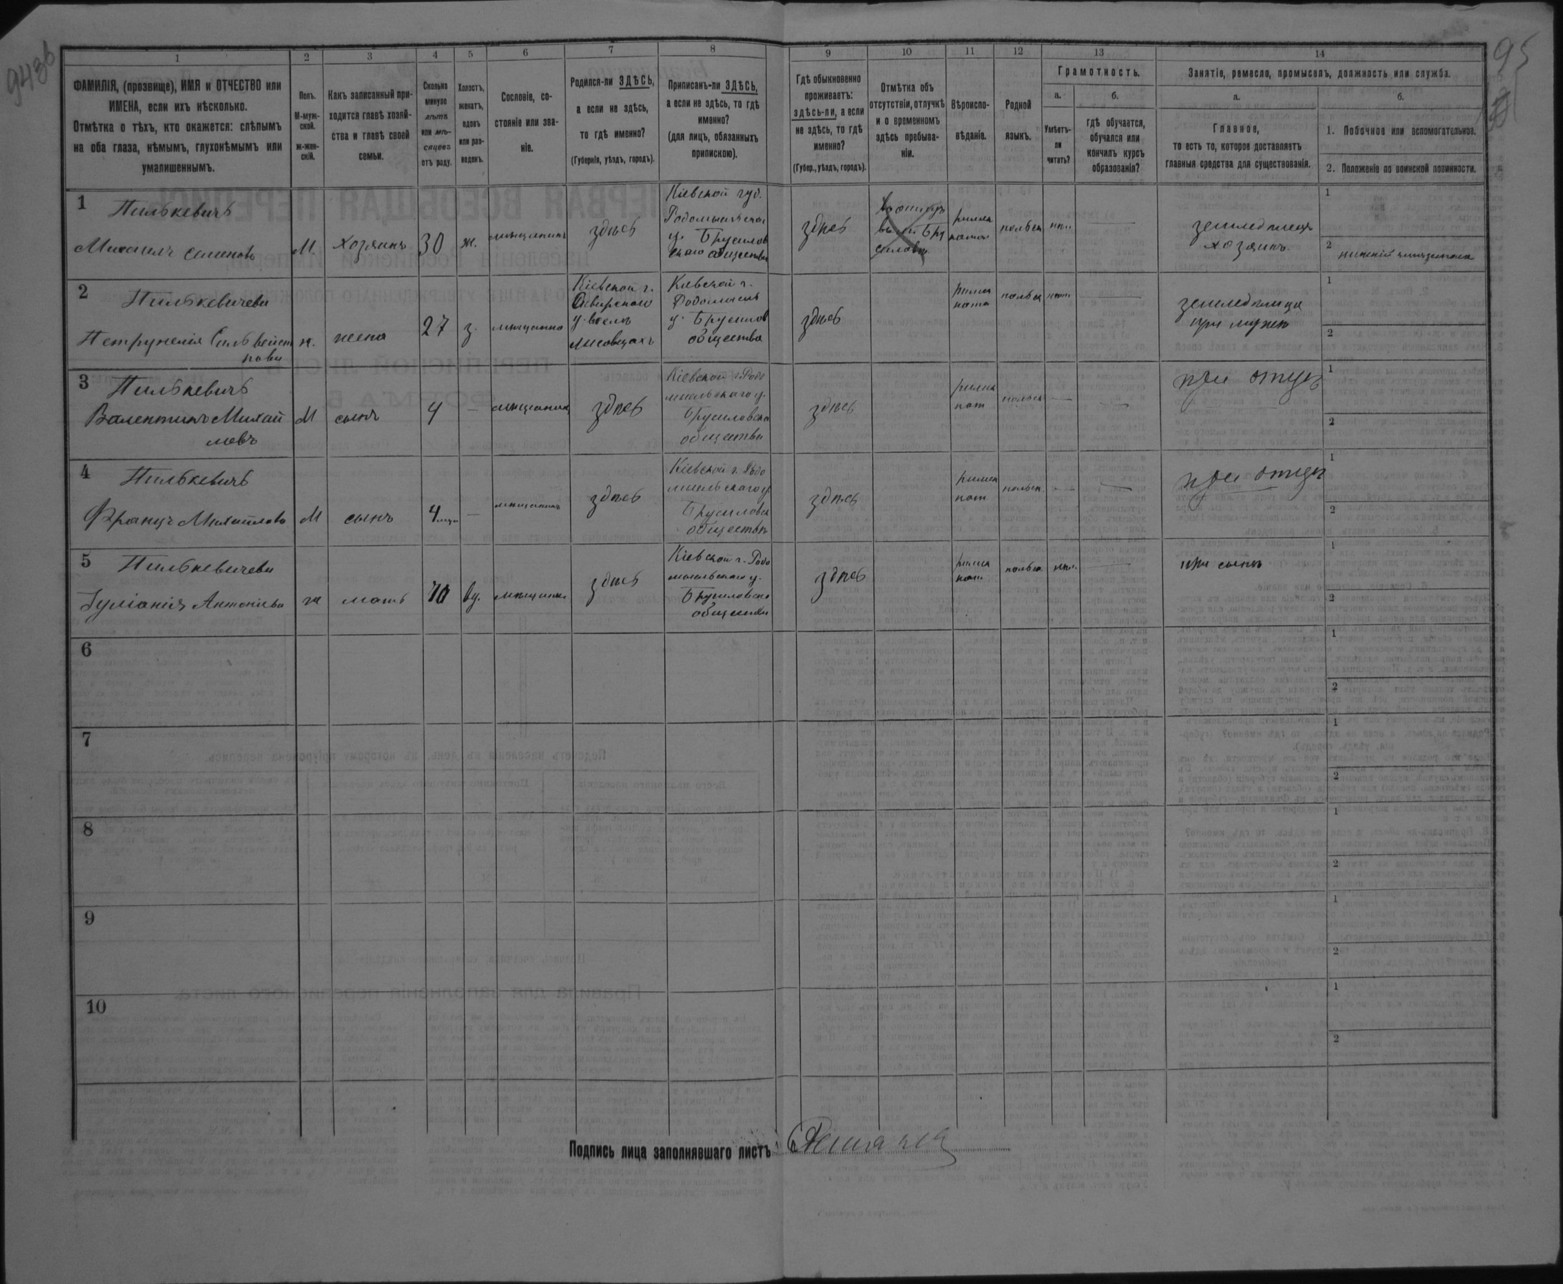 943б
95
1 2 3 4 5 6 7 8 9 10 11 12 13 14
ФАМИЛІЯ, (прозвище), ИМЯ и ОТЧЕСТВО или
ИМЕНА, если ихъ нѣсколько.
Отмѣтка о тѣхъ, кто окажется: слѣпымъ
на оба глаза, нѣмымъ, глухонѣмымъ или
умалишеннымъ.
Полъ.
М-муж-
ской.
ж-жен-
скій.
Какъ записанный при-
ходится главѣ хозяй-
ства и главѣ своей
семьи.
Сколько
минуло
лѣтъ
или мѣ-
сяцевъ
отъ роду.
Холостъ,
женатъ,
вдовъ
или раз-
веденъ.
Сословіе, со-
стояніе или зва-
ніе.
Родился-ли ЗДѢСЬ,
а если не здѣсь,
то гдѣ именно?
(Губернія, уѣздъ, городъ).
Приписанъ-ли ЗДѢСЬ,
а если не здѣсь, то гдѣ
именно?
(для лицъ, обязанныхъ
припискою).
Гдѣ обыкновенно
проживаетъ:
здѣсь-ли, а если
не здѣсь, то гдѣ
именно?
(Губер., уѣздъ, городъ).
Отмѣтка объ
отсутствіи, отлучкѣ
и о временномъ
здѣсь пребыва-
ніи.
Вѣроиспо-
вѣданіе.
Родной
языкъ.
Грамотность.
а.
Умѣетъ-
ли
читать?
б.
гдѣ обучается,
обучался или
кончилъ курсъ
образованія?
Занятіе, ремесло, промыселъ, должность или служба.
а.
Главное,
то есть то, которое доставляетъ
главныя средства для существованія.
б.
1. Побочное или вспомогательное.
2. Положеніе по воинской повинности.
1 Пилькевичъ
Михаилъ Семеновъ М хозяинъ 30 ж. мѣщанинъ здѣсь
Кіевской губ.
Радомысльскаго
у. Брусилов
скаго общества
здѣсь
римск
катол
польск нѣт
земледѣлецъ
хозяинъ
1
2
2 Пилькевичева
Петрунелія Сильвест
рова
ж. жена 27 з. мѣщанка
Кіевской г.
Сквирскаго
у. въ селѣ
Лисовцахъ
Кіевской г.
Радомысль
у. Брусилов
общества
здѣсь
римск
като
польск нѣт
земледѣлица
при мужѣ
1
2
3 Пилькевичъ
Валентинъ Михай
ловъ
М сынъ 4 — мѣщанинъ здѣсь
Кіевской г. Радо
мысльскаго у.
Брусиловска
общества
здѣсь
римск
кат
польск — —
при отцѣ
1
2
4 Пилькевичъ
Францъ Михайловъ М сынъ 4 мѣс. — мѣщанинъ здѣсь
Кіевской г. Радо
мысльскаго у
Брусиловск
общества
здѣсь
римск
кат
польск — —
при отцѣ
1
2
5 Пилькевичева
Іуліанія Антоніева ж мать 70 вд. мѣщанка здѣсь
Кіевской г. Радо
мысльскаго у.
Брусиловска
общества
здѣсь
римск
кат
польск нѣт —
при сынѣ
1
2
6
1
2
7
1
2
8
1
2
9
1
2
10
1
2
Подпись лица заполнявшаго листъ